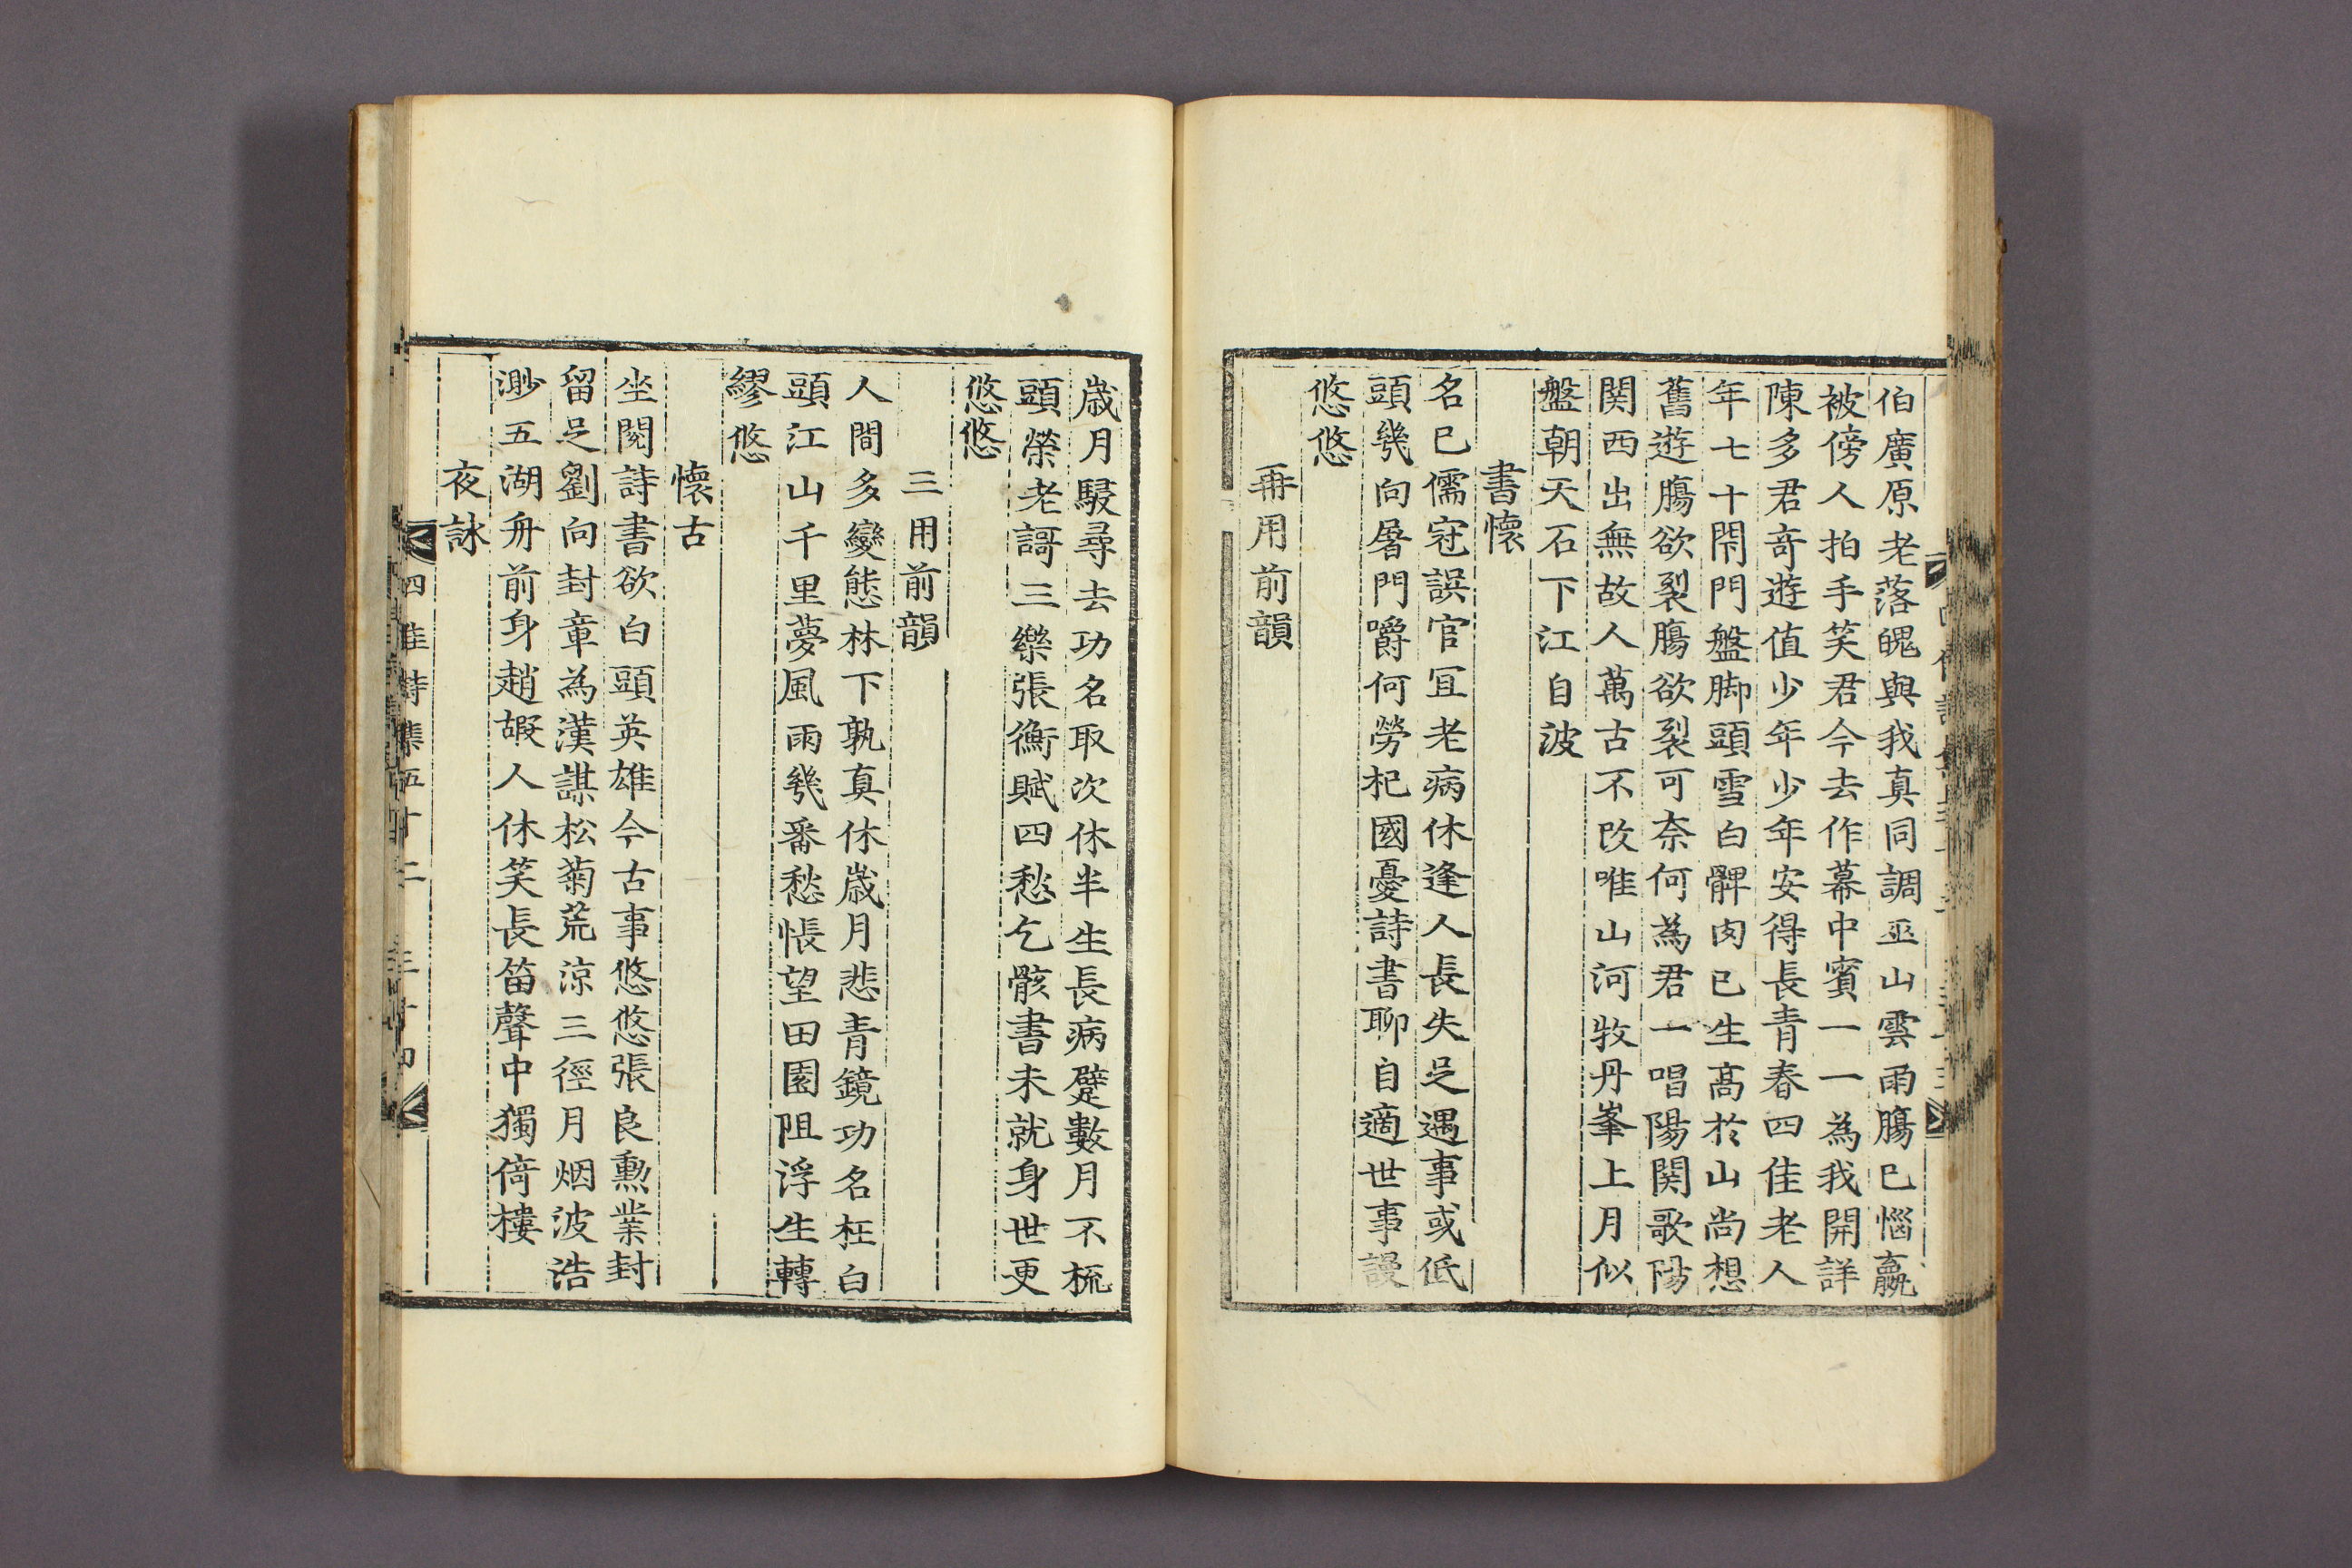 伯廣原老落魄與我真同調巫山雲雨膓已惱嬴
被傍人拍手笑君今去作幕中賓一一為我開詳
陳多君奇遊值少年少年安得長青春四佳老人
年七十閇門盤脚頭雪白髀肉已生高於山尚想
舊遊膓欲裂膓欲裂可奈何為君一唱陽関歌陽
関西出無故人萬古不改唯山河牧丹峯上月似
盤朝天石下江自波
書懷
名已儒冠誤官冝老病休逢人長失足遇事或低
頭幾向屠門嚼何勞杞國憂詩書聊自適世事謾
悠悠
再用前韻
歲月駸尋去功名取次休半生長病躄數月不梳
頭榮老謌三樂張衡賦四愁乞骸書未就身世更
悠悠
三用前韻
人間多變態林下孰真休歲月悲青鏡功名枉白
頭江山千里夢風雨幾番愁悵望田園阻浮生轉
繆悠
懷古
坐閱詩書欲白頭英雄今古事悠悠張良勳業封
留足劉向封章為漢謀松菊荒涼三徑月烟波浩
渺五湖舟前身趙嘏人休笑長笛聲中獨倚樓
夜詠
四佳詩集五十二 三十四